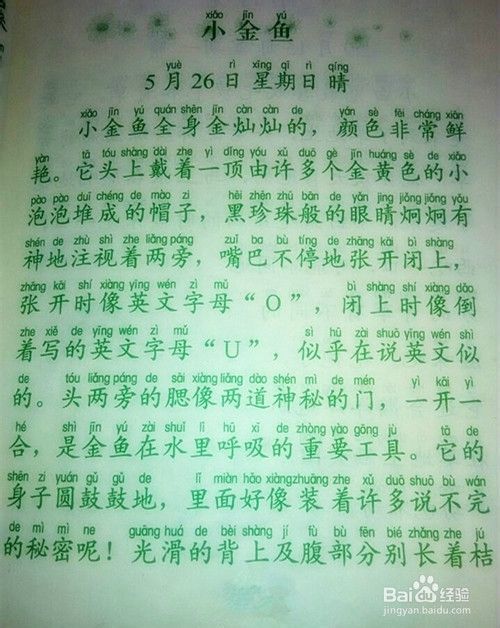 xiǎo jīn yú
小金鱼
yuè rì xīng qī rì qíng
5月26日 星期日 晴
xiǎo jīn yú quán shēn jīn càn càn de yán sè fēi cháng xiān
小金鱼全身金灿灿的，颜色非常鲜
yàn tā tóu shàng dài zhe yì dǐng yóu xǔ duō gè jīn huáng sè de xiǎo
艳。它头上戴着一顶由许多个金黄色的小
pào pào duī chéng de mào zi hēi zhēn zhū bān de yǎn jing jiǒng jiǒng yǒu
泡泡堆成的帽子，黑珍珠般的眼睛炯炯有
shén de zhù shì zhe liǎng páng zuǐ ba bù tíng de zhāng kāi bì shàng
神地注视着两旁，嘴巴不停地张开闭上，
zhāng kāi shí xiàng yīng wén zì mǔ bì shàng shí xiàng dào
张开时像英文字母“O”，闭上时像倒
zhe xiě de yīng wén zì mǔ sì hū zài shuō yīng wén shì
着写的英文字母“U”，似乎在说英文似
de tóu liǎng páng de sāi xiàng liǎng dào shén mì de mén yì kāi yì
的。头两旁的腮像两道神秘的门，一开一
hé shì jīn yú zài shuǐ lǐ hū xī de zhòng yào gōng jù tā de
合，是金鱼在水里呼吸的重要工具。它的
shēn zi yuán gǔ gǔ de lǐ miàn hǎo xiàng zhuāng zhe xǔ duō shuō bù wán
身子圆鼓鼓地，里面好像装着许多说不完
de mì mì ne guāng huá de bèi shàng jí fù bù fēn bié zhǎng zhe jú
的秘密呢！光滑的背上及腹部分别长着桔
Bai 经验
jingyan.baidu.com